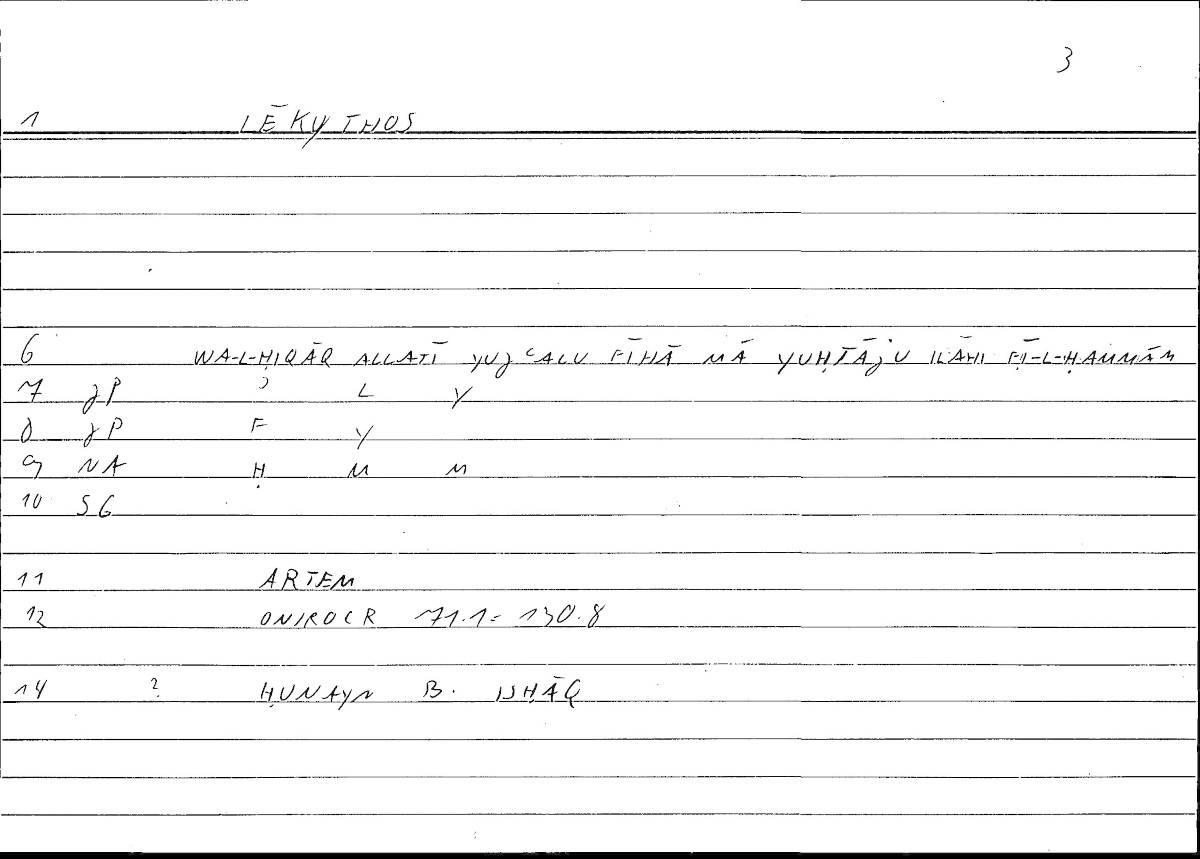 3
1 LĒKYTHOS
6 WA-L-ḤIQĀQ ALLATĪ YUǧʿALU FĪHĀ MĀ YUḤTĀǧU ILĀHI FĪ-L-ḤAMMĀM
7 JP ʾ L Y
8 JP F Y
9 NA Ḥ M M
10 SG
11 ARTEM
12 ONIROCR 71.1= 130.8
14 ? ḤUNAYN B. ISḤĀQ